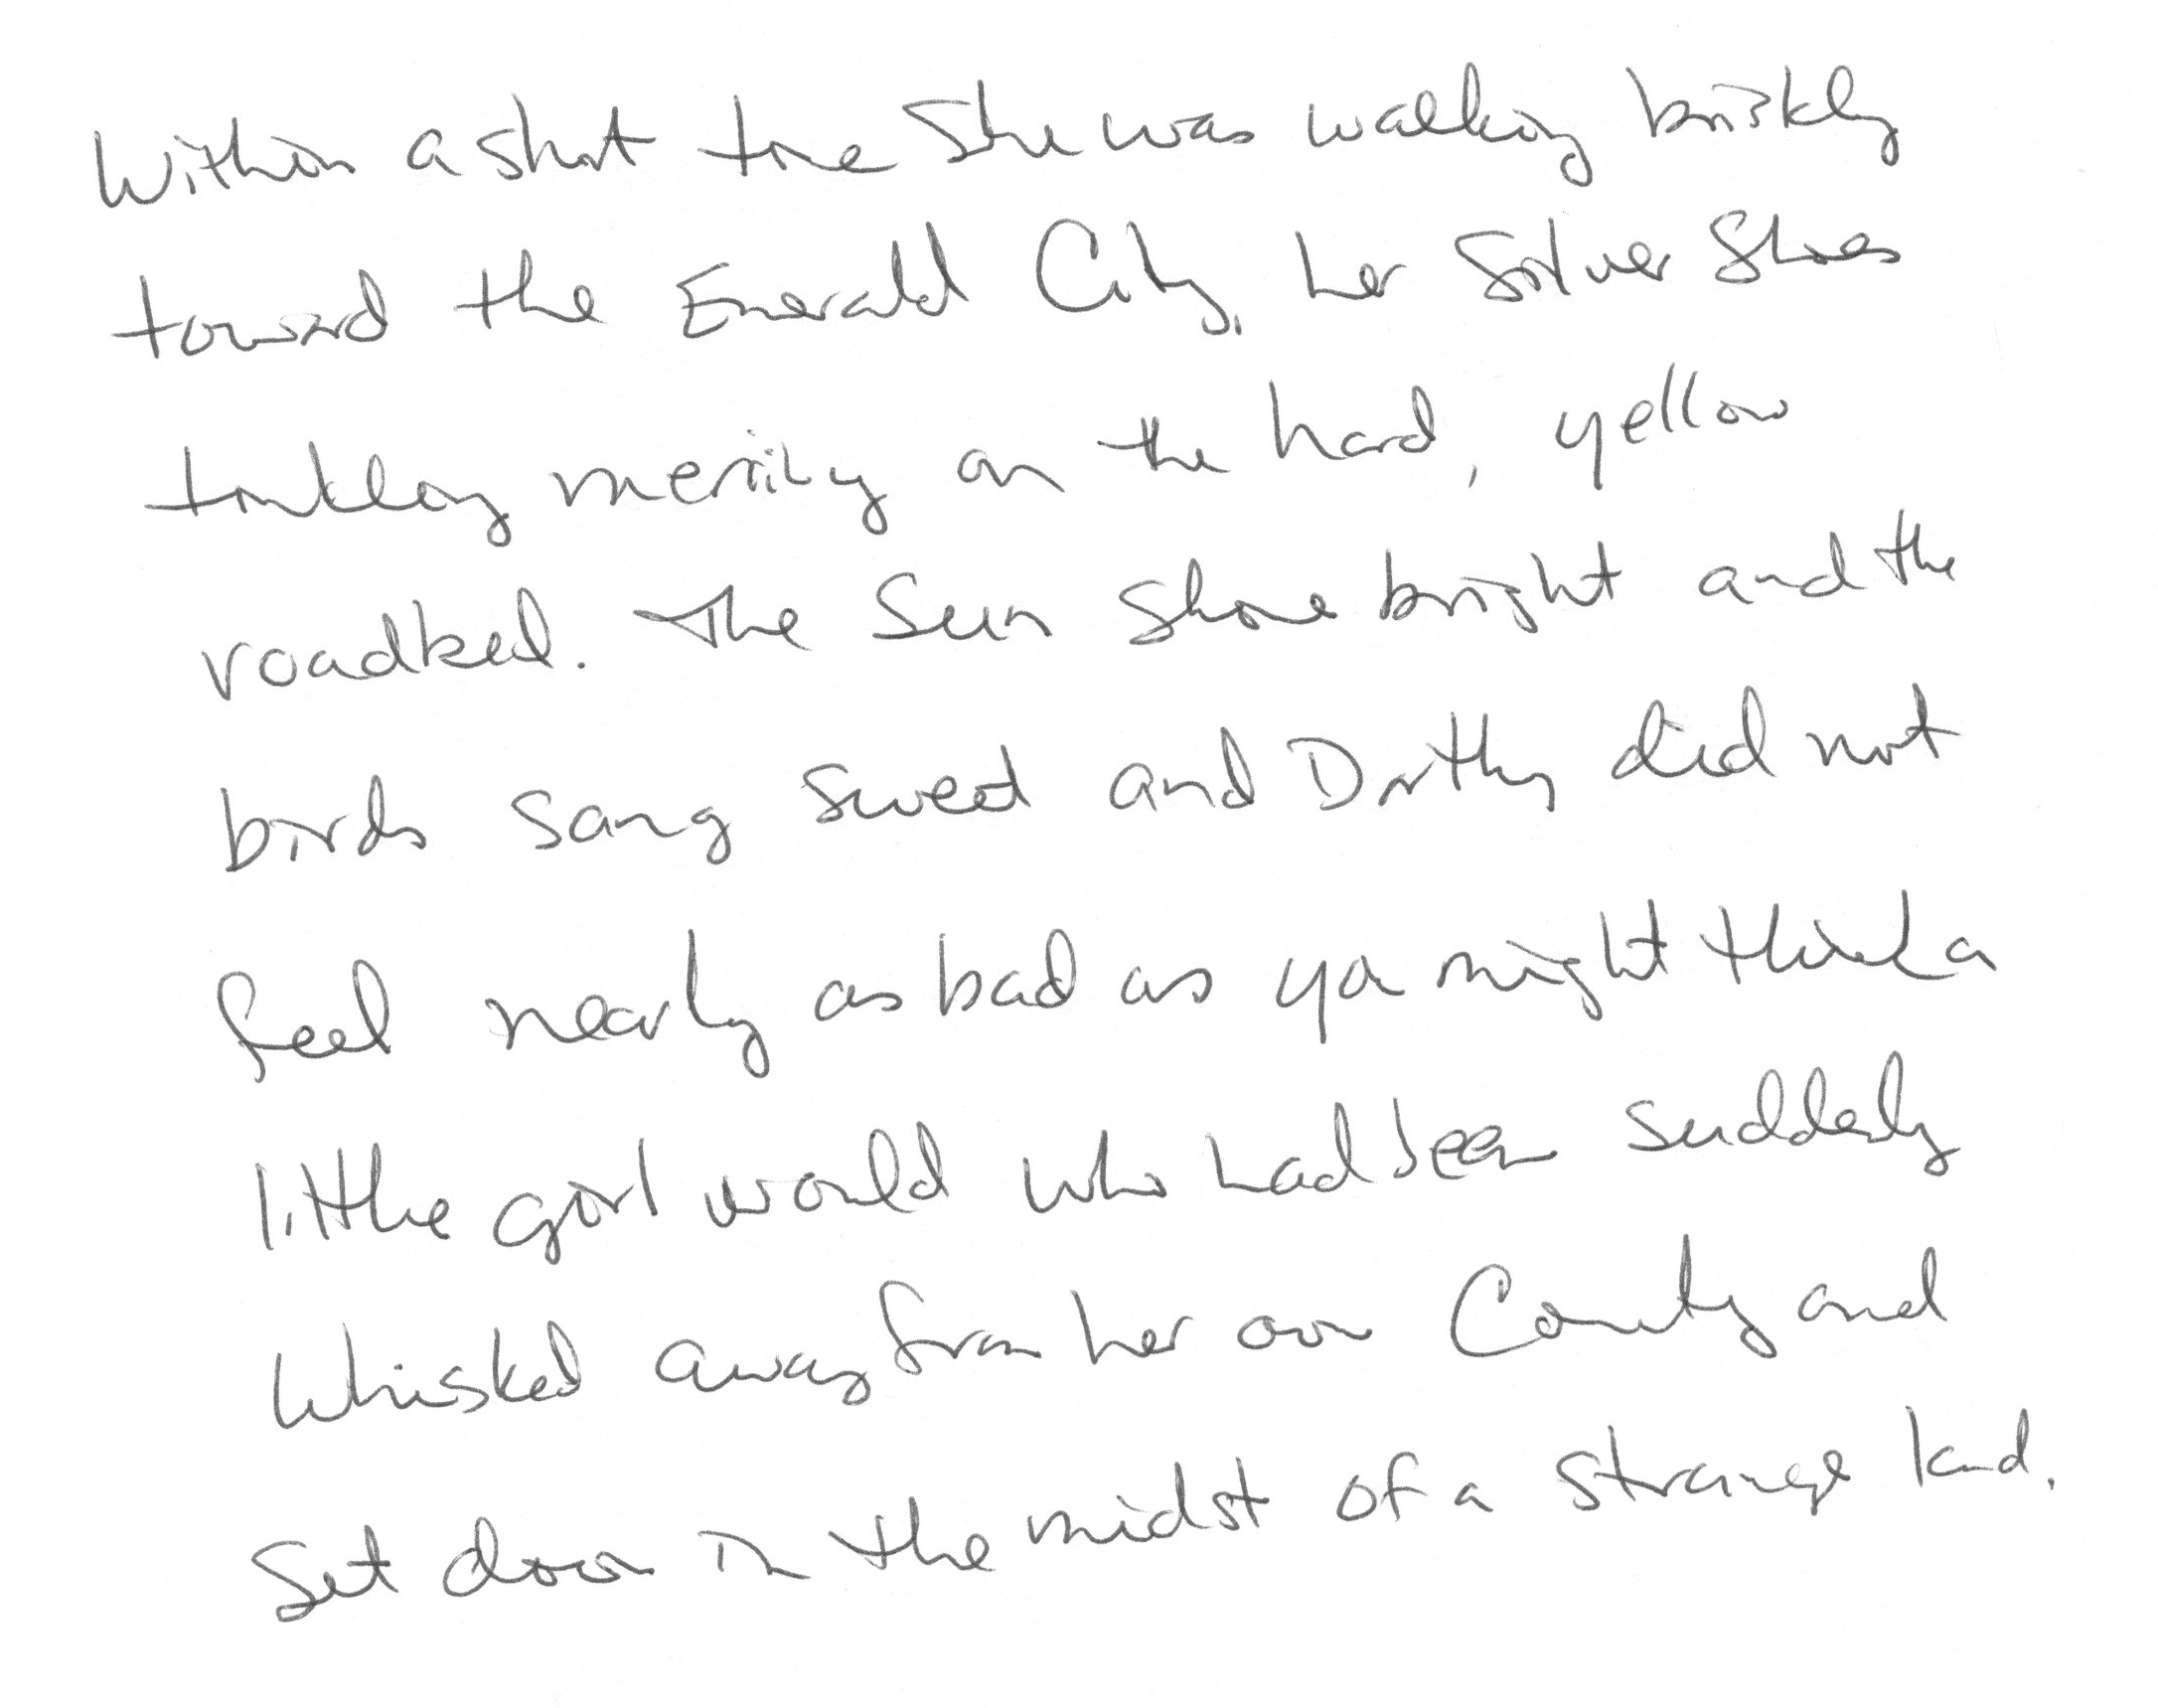 Within a short time she was walking briskly
toward the Emerald City, her Silver Shoes
tinkling merrily on the hard, yellow
roadbed. The Sun shone bright and the
birds sang sweet and Dorothy did not
feel nearly as bad as you might think a
little girl would who had been suddenly
whisked away from her own Country and
set down in the midst of a strange land.